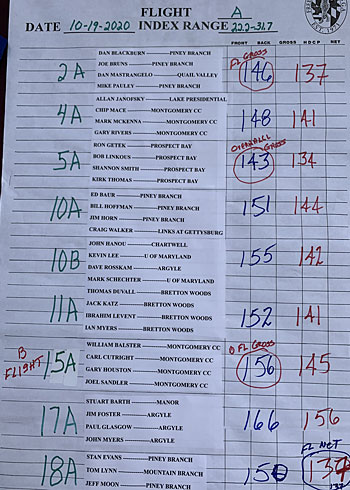 FLIGHT A
DATE 10-19-2020 INDEX RANGE 22.2-31.7
FRONT BACK GROSS HDCP NET
DAN BLACKBURN ----PINEY BRANCH
2A JOE BRUNS ----PINEY BRANCH FL GROSS 146 137
DAN MASTRANGELO ----QUAIL VALLEY
MIKE PAULEY ----PINEY BRANCH
ALLAN JANOFSKY ----LAKE PRESIDENTIAL
4A CHIP MACE ----MONTGOMERY CC 148 141
MARK MCKENNA ----MONTGOMERY CC
GARY RIVERS ----MONTGOMERY CC
RON GETEK ----PROSPECT BAY OVERALL GROSS
5A BOB LINKOUS ----PROSPECT BAY 143 134
SHANNON SMITH ----PROSPECT BAY
KIRK THOMAS ----PROSPECT BAY
ED BAUR ----PINEY BRANCH
10A BILL HOFFMAN ----PINEY BRANCH 151 144
JIM HORN ----PINEY BRANCH
CRAIG WALKER ----LINKS AT GETTYSBURG
JOHN HANOU ----CHARTWELL
10B KEVIN LEE ----U OF MARYLAND 155 142
DAVE ROSSKAM ----ARGYLE
MARK SCHECHTER ----U OF MARYLAND
THOMAS DUVALL ----BRETTON WOODS
11A JACK KATZ ----BRETTON WOODS 152 141
IBRAHIM LEVENT ----BRETTON WOODS
IAN MYERS ----BRETTON WOODS
WILLIAM BALSTER ----MONTGOMERY CC FL GROSS
B FLIGHT 15A CARL CUTRIGHT ----MONTGOMERY CC 156 145
GARY HOUSTON ----MONTGOMERY CC
JOEL SANDLER ----MONTGOMERY CC
STUART BARTH ----MANOR
17A JIM FOSTER ----ARGYLE 166 156
PAUL GLASGOW ----ARGYLE
JOHN MYERS ----ARGYLE FL NET
STAN EVANS ----PINEY BRANCH
18A TOM LYNN ----MOUNTAIN BRANCH 150
JEFF MOON ----PINEY BRANCH 137